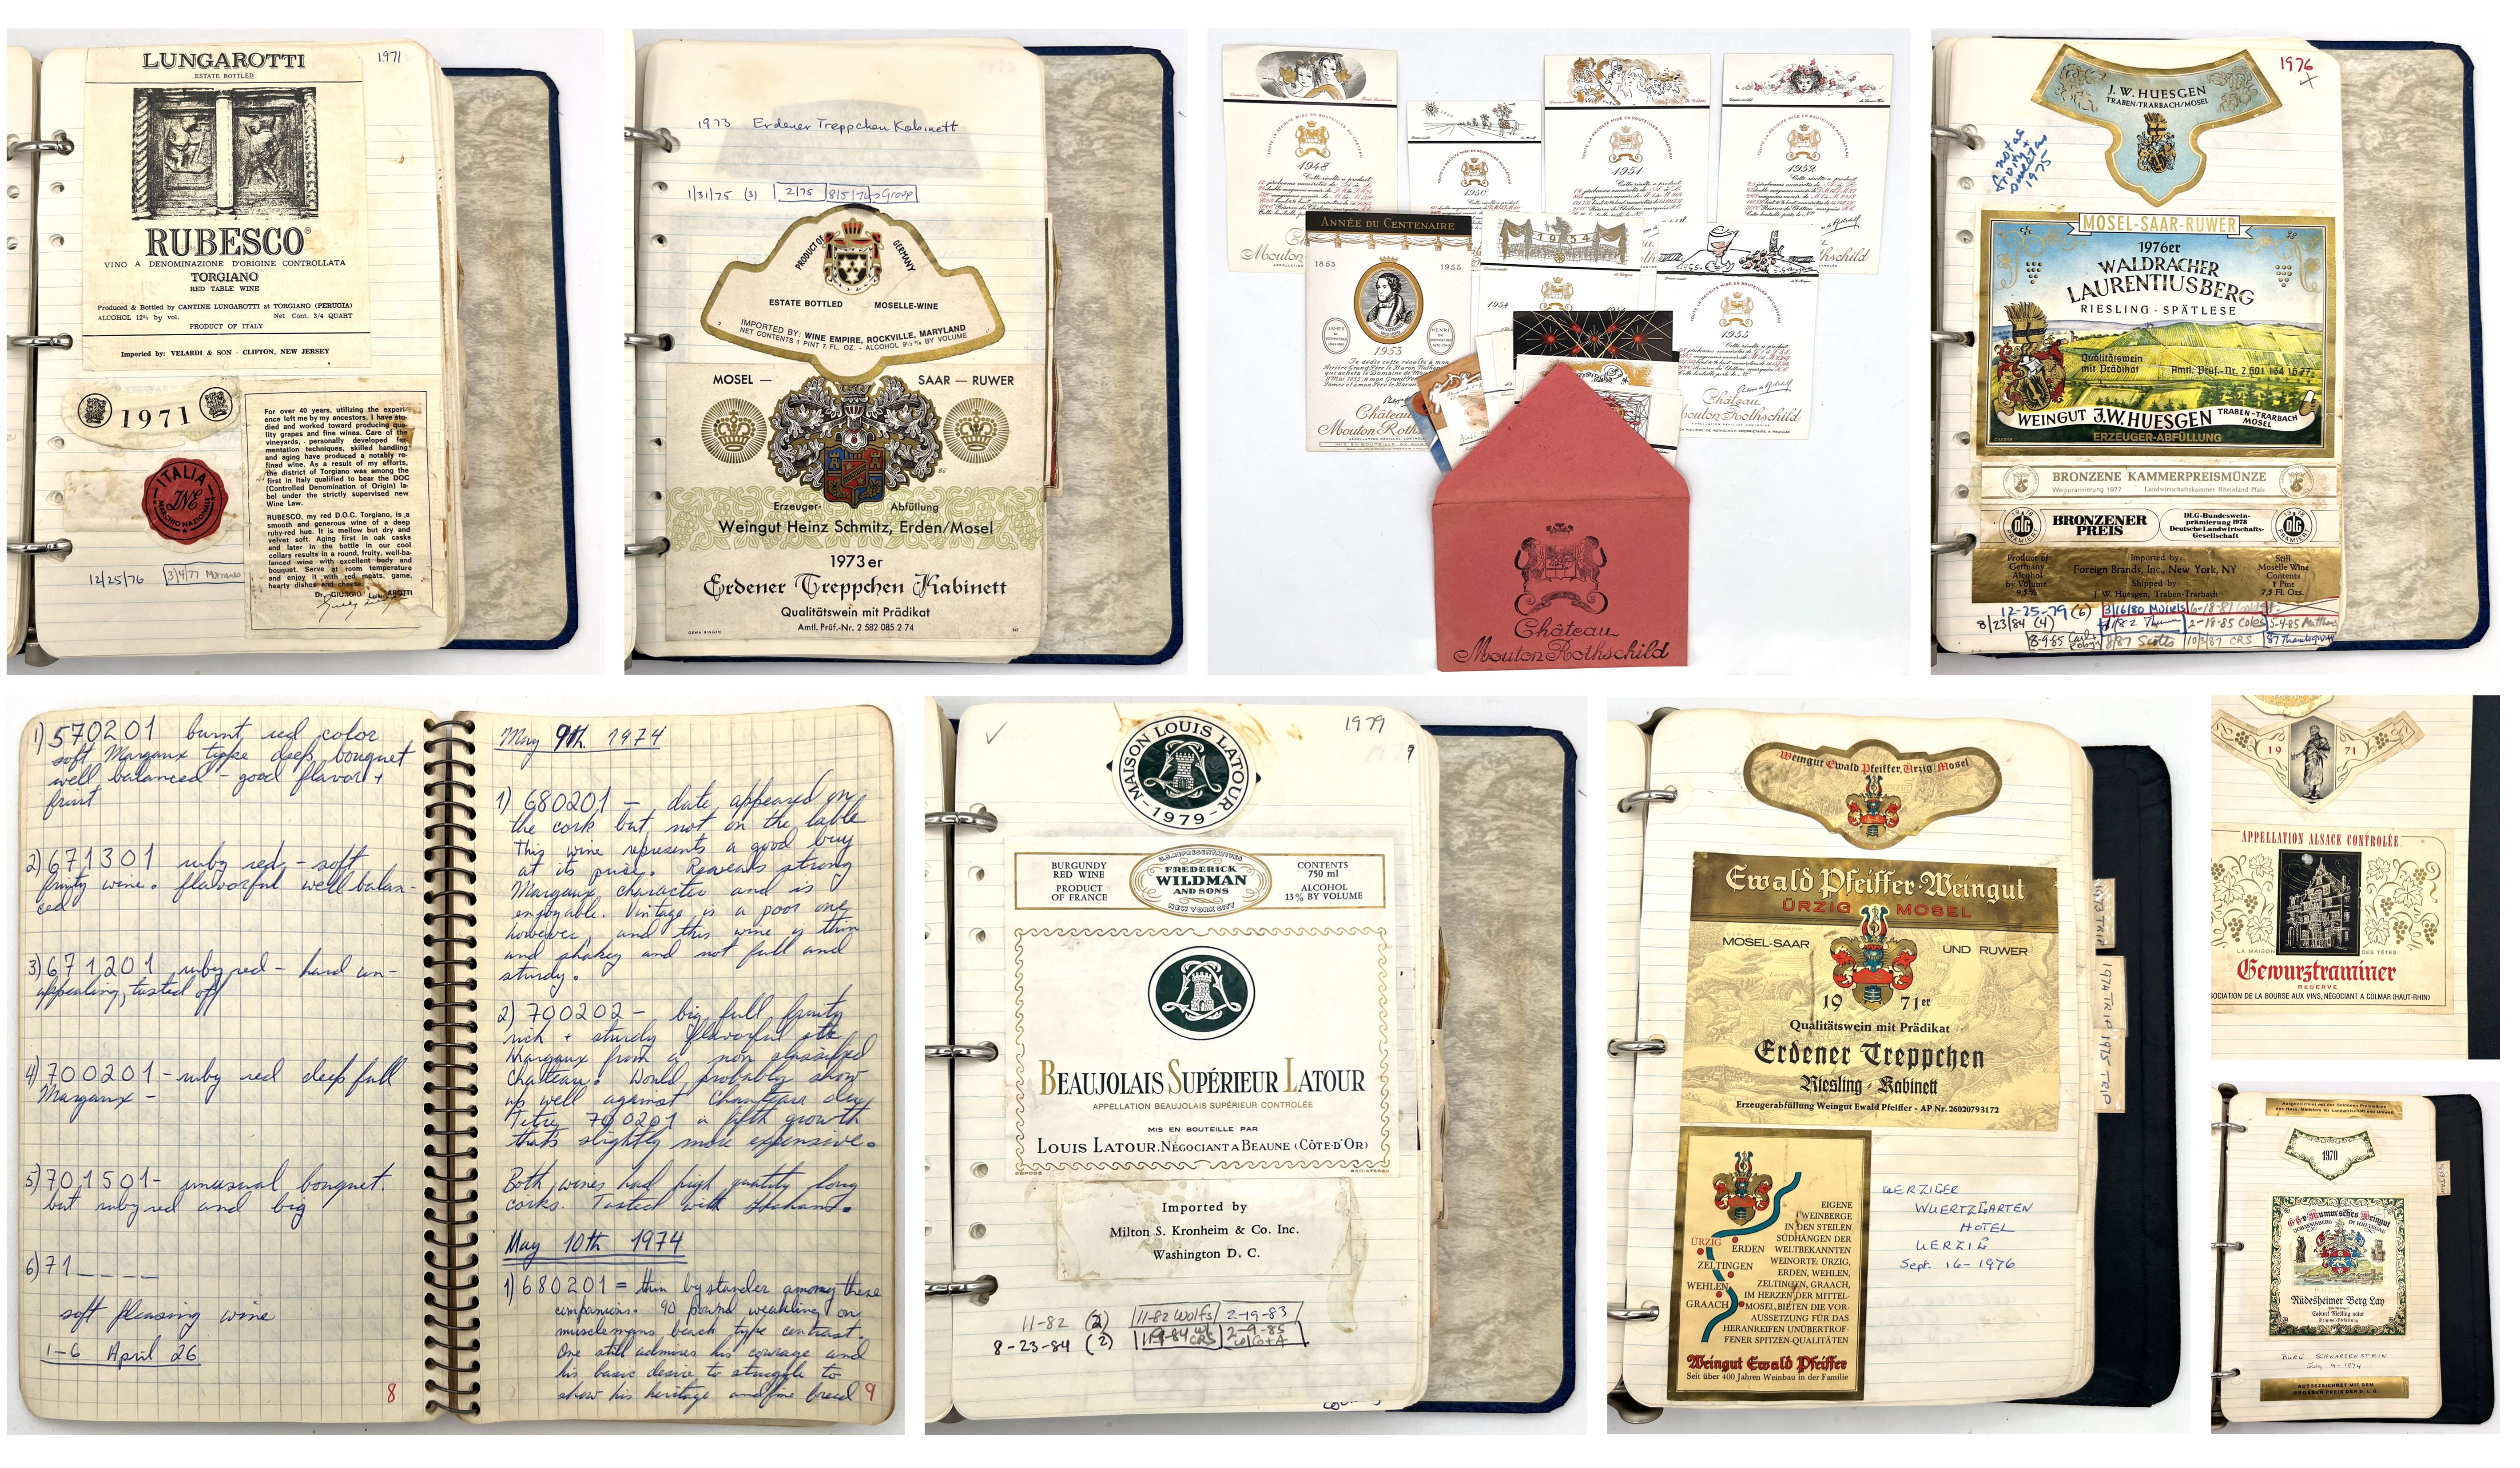 LUNGAROTTI
ESTATE BOTTLED
1971
RUBESCO®
VINO A DENOMINAZIONE D'ORIGINE CONTROLLATA
TORGIANO
RED TABLE WINE
Produced & Bottled by CANTINE LUNGAROTTI at TORGIANO (PERUGIA)
ALCOHOL 12% by vol. Net Cont. 3/4 QUART
PRODUCT OF ITALY
Imported by: VELARDI & SON - CLIFTON, NEW JERSEY
1971
ITALIA
INE
MARCHIO NAZIONALE
For over 40 years, utilizing the experi-
ence left me by my ancestors, I have stu-
died and worked toward producing qua-
lity grapes and fine wines. Care of the
vineyards, personally developed fer-
mentation techniques, skilled handling
and aging have produced a notably re-
fined wine. As a result of my efforts,
the district of Torgiano was among the
first in Italy qualified to bear the DOC
(Controlled Denomination of Origin) la-
bel under the strictly supervised new
Wine Law.
RUBESCO, my red D.O.C. Torgiano, is a
smooth and generous wine of a deep
ruby-red hue. It is mellow but dry and
velvet soft. Aging first in oak casks
and later in the bottle in our cool
cellars results in a round, fruity, well-ba-
lanced wine with excellent body and
bouquet. Serve at room temperature
and enjoy it with red meats, game,
hearty dishes and cheese.
Dr. GIORGIO LUNGAROTTI
12/25/76 3/4/77
1973 Erdener Treppchen Kabinett
1/31/75 (3) 2/75 8/5/76 Group
PRODUCT OF GERMANY
ESTATE BOTTLED MOSELLE-WINE
IMPORTED BY: WINE EMPIRE, ROCKVILLE, MARYLAND
NET CONTENTS 1 PINT 7 FL. OZ. - ALCOHOL 9½ % BY VOLUME
MOSEL — SAAR — RUWER
Erzeuger- Abfüllung
Weingut Heinz Schmitz, Erden/Mosel
1973er
Erdener Treppchen Kabinett
Qualitätswein mit Prädikat
Amtl. Prüf.-Nr. 2 582 085 2 74
TOUTE LA RÉCOLTE MISE EN BOUTEILLES AU CHÂTEAU
1948
Cette récolte a produit
1950
Cette récolte a produit
1951
Cette récolte a produit
1952
Cette récolte a produit
ANNÉE DU CENTENAIRE
1853 1953
1953
Château
Mouton Roths
1954
1954
1955
Cette récolte a produit
Château
Mouton Rothschild
Château
Mouton Rothschild
1976
J. W. HUESGEN
TRABEN-TRARBACH/MOSEL
not as
fruity +
sweet as
1975
MOSEL-SAAR-RUWER
1976er
WALDRACHER
LAURENTIUSBERG
RIESLING - SPÄTLESE
Qualitätswein
mit Prädikat Amtl. Prüf.-Nr. 2 601 164 16 77
WEINGUT J.W. HUESGEN TRABEN-TRARBACH
MOSEL
ERZEUGER-ABFÜLLUNG
BRONZENE KAMMERPREISMÜNZE
Weinprämierung 1977 Landwirtschaftskammer Rheinland-Pfalz
1978 DLG PRÄMIERT
BRONZENER
PREIS
DLG-Bundeswein-
prämierung 1978
Deutsche Landwirtschafts-
Gesellschaft
1978 DLG PRÄMIERT
Product of
Germany
Alcohol
by Volume
9,5%
Imported by:
Foreign Brands, Inc., New York, NY
Shipped by:
J. W. Huesgen, Traben-Trarbach
Still
Moselle Wine
Contents
1 Pint
7,5 Fl. Ozs.
12-25-79 (6) 3/16/80 6-18-81
8/23/84 (4) 2-18-85 Coles 5-4-85
8-9-85 8/87 Scotts 10/3/87 CRS 87 Thanksgiving
1) 570201 burnt red color
soft Margaux type deep bouquet
well balanced - good flavor +
fruit
2) 671301 ruby red - soft
fruity wine. flavorful well balan-
ced
3) 671201 ruby red - hard un-
appealing, tasted off
4) 700201 - ruby red deep full
Margaux -
5) 701501 - unusual bouquet.
but ruby red and big
6) 71_____
soft pleasing wine
1-6 April 26
8
May 9th 1974
1) 680201 - date appeared on
the cork but not on the lable
This wine represents a good buy
at its price. Reveals strong
Margaux character and is
enjoyable. Vintage is a poor one
however, and this wine is thin
and shakey and not full and
sturdy.
2) 700202 - big full fruity
rich + sturdy flavorful
Margaux from a non classified
Chatteau. Would probably show
up well against Chanteau du
Tetre 700201 a fifth growth
that's slightly more expensive.
Both wines had high quality long
corks. Tasted with
May 10th 1974
1) 680201 = thin by stander among these
companions. 90 pound weakling on
musclemans beach type contrast.
One still admires his courage and
his basic desire to struggle to
show his heritage and fine breed
9
1979
MAISON LOUIS LATOUR
-1979-
BURGUNDY
RED WINE
PRODUCT
OF FRANCE
U.S. REPRESENTATIVES
FREDERICK
WILDMAN
AND SONS
NEW YORK CITY
CONTENTS
750 ml
ALCOHOL
13% BY VOLUME
BEAUJOLAIS SUPÉRIEUR LATOUR
APPELLATION BEAUJOLAIS SUPÉRIEUR CONTROLÉE
MIS EN BOUTEILLE PAR
LOUIS LATOUR, NÉGOCIANT A BEAUNE (CÔTE-D'OR)
DÉPOSÉ REGISTERED
Imported by
Milton S. Kronheim & Co. Inc.
Washington D. C.
11-82 (2) 11-82 Wolfs 2-19-83
8-23-84 (2) CRS 2-9-85
Weingut Ewald Pfeiffer, Ürzig/Mosel
Ewald Pfeiffer-Weingut
ÜRZIG MOSEL
MOSEL-SAAR UND RUWER
19 71er
Qualitätswein mit Prädikat
Erdener Treppchen
Riesling - Kabinett
Erzeugerabfüllung Weingut Ewald Pfeiffer - AP Nr. 26020793172
1973 TRIP
1974 TRIP
1975 TRIP
ÜRZIG
ERDEN
ZELTINGEN
WEHLEN
GRAACH
EIGENE
WEINBERGE
IN DEN STEILEN
SÜDHÄNGEN DER
WELTBEKANNTEN
WEINORTE: ÜRZIG,
ERDEN, WEHLEN,
ZELTINGEN, GRAACH,
IM HERZEN DER MITTEL-
MOSEL, BIETEN DIE VOR-
AUSSETZUNG FÜR DAS
HERANREIFEN UNÜBERTROF-
FENER SPITZEN-QUALITÄTEN
Weingut Ewald Pfeiffer
Seit über 400 Jahren Weinbau in der Familie
UERZIGER
WUERTZGARTEN
HOTEL
UERZIG
Sept. 16-1976
19 71
APPELLATION ALSACE CONTRÔLÉE
LA MAISON DES TÊTES
Gewurztraminer
RESERVE
SOCIATION DE LA BOURSE AUX VINS, NÉGOCIANT A COLMAR (HAUT-RHIN)
1970
Rüdesheimer Berg Lay
Cabinet Riesling natur
BURG SCHWARZENSTEIN
July 19-1974
AUSGEZEICHNET MIT DEM
GROSSEN PREIS DER D.L.G.